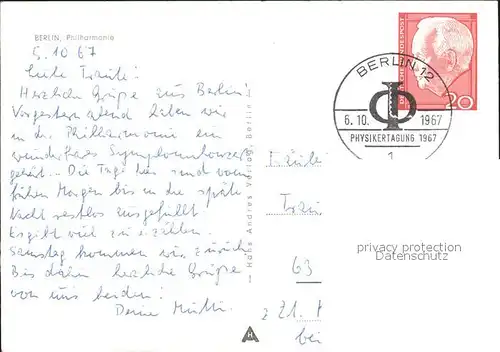 BERLIN, Philharmonie
5.10.67
Liebe Traute!
Herzliche Grüße aus Berlin!
Vorgestern abend haben wir
in der Philharmonie ein
wunderbares Symphoniekonzert
gehört. Die Tage hier sind vom
frühen Morgen bis in die späte
Nacht restlos ausgefüllt
Es gibt viel zu erzählen.
Samstag kommen wir zurück
Bis dahin herzliche Grüße
von uns beiden!
Deine Mutti.
Hans Andres Verlag, Berlin
DEUTSCHE BUNDESPOST
20
BERLIN 12
6.10. 1967
PHYSIKERTAGUNG 1967
1
Fräulei
Trau
63
z Zt.
bei
privacy protection
Datenschutz